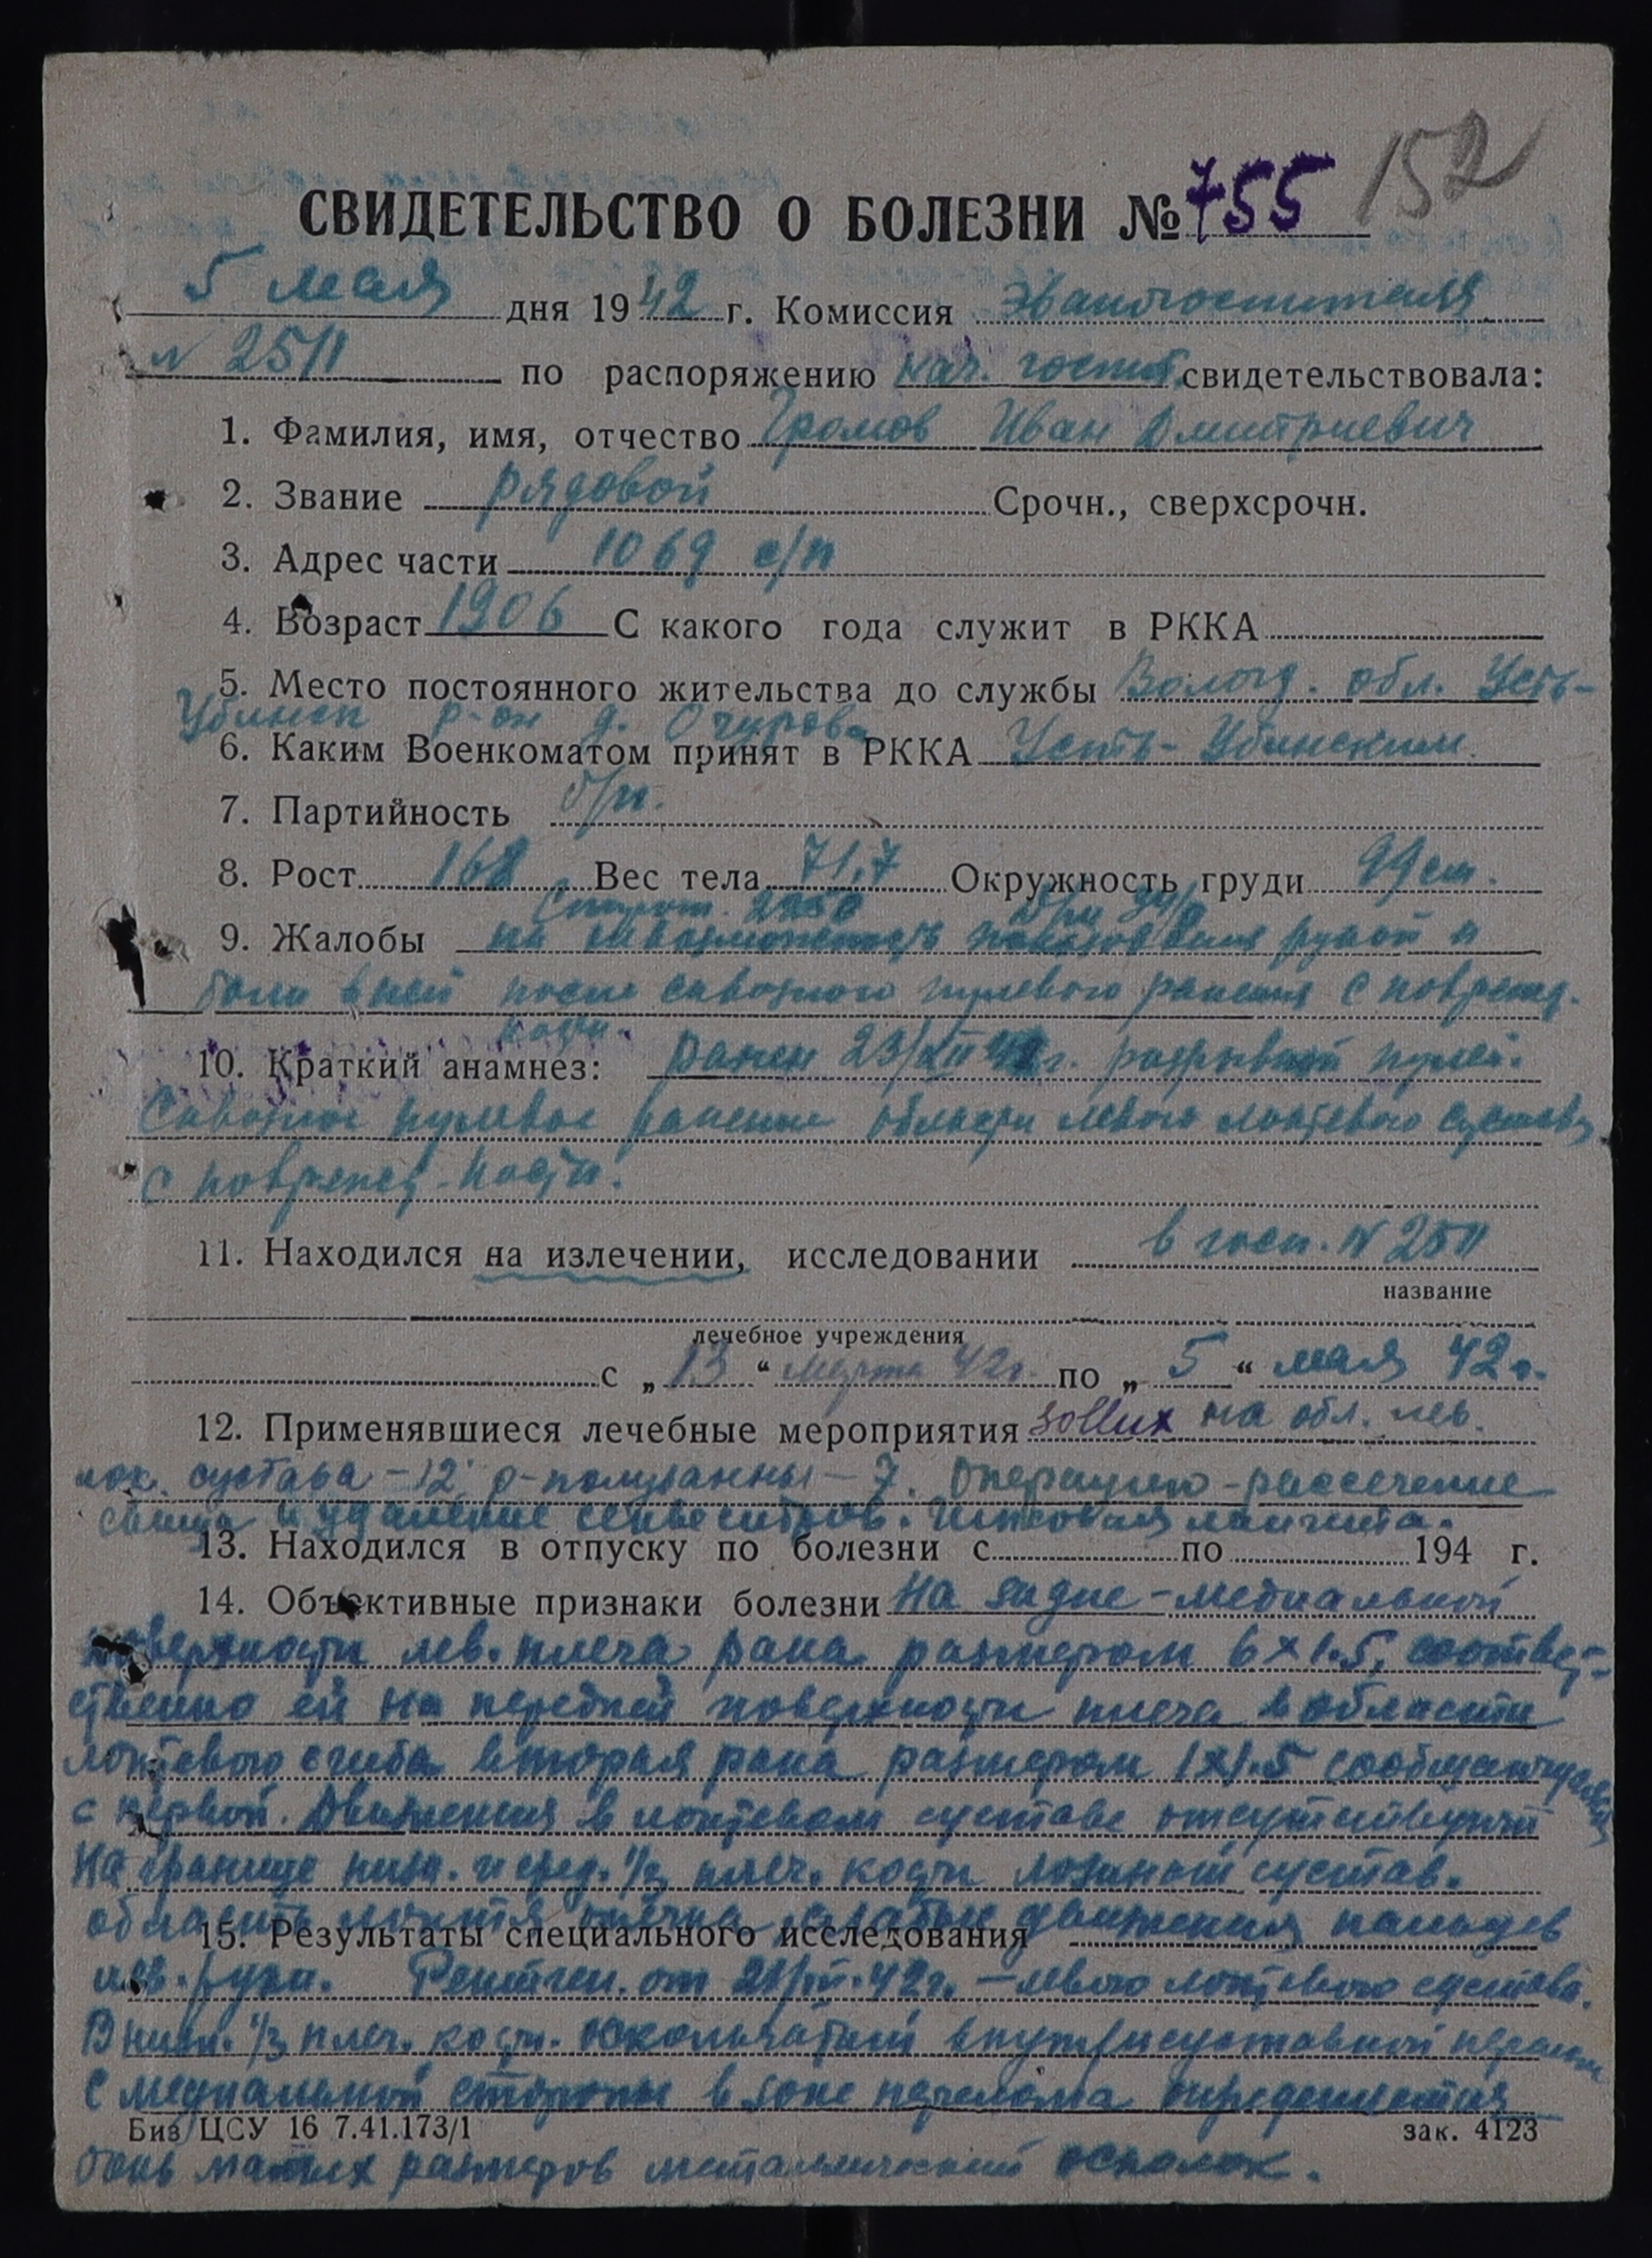 152
СВИДЕТЕЛЬСТВО О БОЛЕЗНИ № 755
5 мая дня 1942 г. Комиссия Эвакогоспиталя
N 2511 по распоряжению нач. госпит. свидетельствовала:
1. Фамилия, имя, отчество Громов Иван Дмитриевич
2. Звание рядовой Срочн., сверхсрочн.
3. Адрес части 1069 с/п
4. Возраст 1906 С какого года служит в РККА
5. Место постоянного жительства до службы Волог. обл. Усть-
Убинск р-он д. Очурово
6. Каким Военкоматом принят в РККА Усть-Убинским.
7. Партийность б/п.
8. Рост 168 Вес тела 71,7 Окружность груди 94 см.
Спиром. 2250
9. Жалобы на невозможность рукой и
боли в ней после сквозного пулевого ранения с поврежд.
кости.
10. Краткий анамнез: Ранен 23/XII 41 г. разрывной пулей.
Сквозное пулевое ранение области левого локтевого сустава
с поврежд. кости.
11. Находился на излечении, исследовании в госп. N 2511
название
лечебное учреждения
с „13“ Марта 42г. по „5“ мая 42 г.
12. Применявшиеся лечебные мероприятия Sollux на обл. лев.
лок. сустава - 12, полуванны - 7. Операцию - рассечение
свища и удаление секвестров. Гипсовая лангета.
13. Находился в отпуску по болезни с по 194 г.
14. Объективные признаки болезни На задне-медиальной
поверхности лев. плеча рана размером 6×1.5, соответ-
ственно ей на передней поверхности плеча в области
локтевого сгиба вторая рана размером 1×1.5 сообщающаяся
с первой. Движения в локтевом суставе отсутствуют
На границе ниж. и сред. 1/3 плеч. кости ложный сустав.
область движения пальцев
15. Результаты специального исследования
лев. руки. Рентген. от 21/III-42г. - левого локтевого сустава.
В ниж. 1/3 плеч. кости. Оскольчатый внутрисуставной перелом
с медиальной стороны в зоне перелома определяется
Биз ЦСУ 16 7.41.173/1 зак. 4123
тень малых размеров металлический осколок.